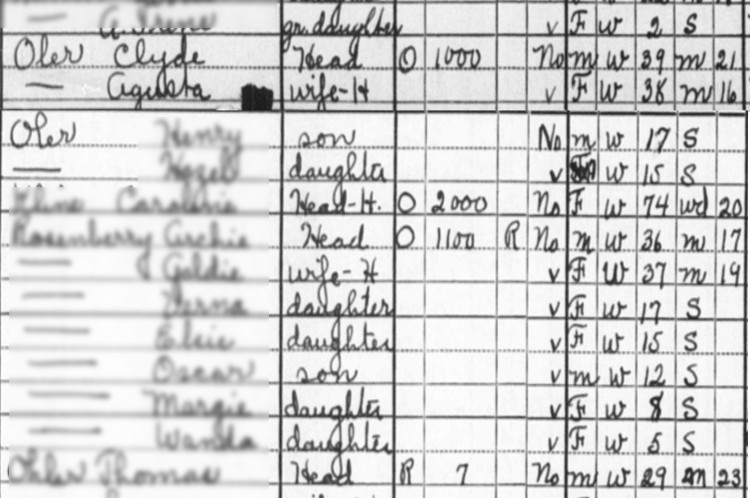 gr. daughter v F W 2 S
Oler Clyde Head O 1000 No m W 39 m 21
— wife-H v F W 38 m 16
Oler Henry son No m W 17 S
— Hazel daughter v F W 15 S
Caroline Head-H. O 2000 No F W 74 wd 20
Rosenberry Archie Head O 1100 R No m W 36 m 17
— Goldie wife-H v F W 37 m 19
— Verna daughter v F W 17 S
— Elsie daughter v F W 15 S
— Oscar son v m W 12 S
— Margie daughter v F W 8 S
— Wanda daughter v F W 5 S
Ohler Thomas Head R 7 No m W 29 m 23